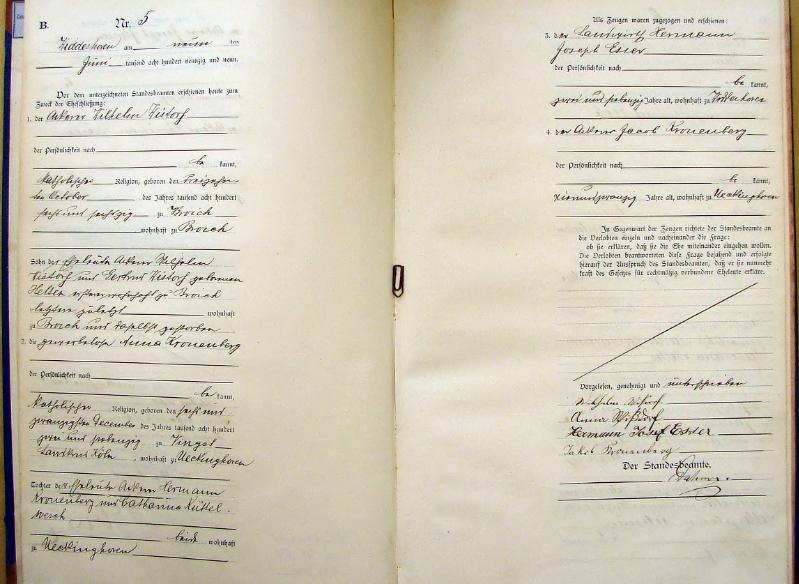 B.
Nr. 5
am neun ten
Juni tausend acht hundert neunzig und neun.
Vor dem unterzeichneten Standesbeamten erschienen heute zum
Zweck der Eheschließung:
1. der Ackerer Wilhelm
der Persönlichkeit nach
be kannt,
katholischer Religion, geboren den dreizehn
ten October des Jahres tausend acht hundert
sechs und sechszig zu Broich
wohnhaft zu Broich
Sohn der Eheleute Ackerer Wilhelm
und Gertrud geborenen
zu Broich
letztere zuletzt wohnhaft
zu Broich und daselbst gestorben
2. die gewerbelose Anna Kronenberg
der Persönlichkeit nach
be kannt,
katholischer Religion, geboren den sechs und
zwanzigsten December des Jahres tausend acht hundert
zwei und siebenzig zu Vingst
Landkreis Köln, wohnhaft zu Ueckinghoven
Tochter der Eheleute Ackerer Hermann
Kronenberg und Catharina
beide wohnhaft
zu Ueckinghoven
Als Zeugen waren zugezogen und erschienen:
3. der Landwirth Hermann
Joseph Esser
der Persönlichkeit nach
be kannt,
zwei und siebenzig Jahre alt, wohnhaft zu
4. der Ackerer Jacob Kronenberg
der Persönlichkeit nach
be kannt,
Jahre alt, wohnhaft zu Ueckinghoven
In Gegenwart der Zeugen richtete der Standesbeamte an
die Verlobten einzeln und nacheinander die Frage:
ob sie erklären, daß sie die Ehe miteinander eingehen wollen.
Die Verlobten beantworteten diese Frage bejahend und erfolgte
hierauf der Ausspruch des Standesbeamten, daß er sie nunmehr
kraft des Gesetzes für rechtmäßig verbundene Eheleute erkläre.
Vorgelesen, genehmigt und unterschrieben
Wilhelm
Anna
Hermann Josef Esser
Jakob Kronenberg
Der Standesbeamte.